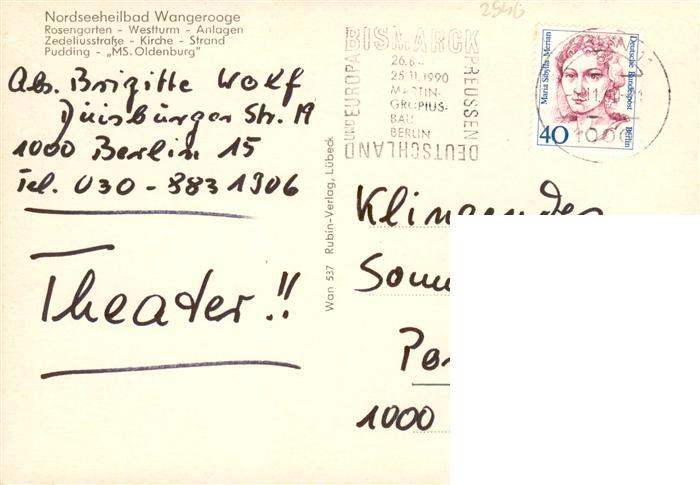 Nordseeheilbad Wangerooge
Rosengarten - Westturm - Anlagen
Zedeliusstraße - Kirche - Strand
Pudding - „MS. Oldenburg"
Abs. Brigitte Wolf
Duisburger Str. 19
1000 Berlin 15
Tel. 030 - 883 1306
Theater!!
Wan 537 Rubin-Verlag, Lübeck
2546
BISMARCK
PREUSSEN
DEUTSCHLAND
UND EUROPA
26.8.-
25.11.1990
MARTIN-
GROPIUS-
BAU
BERLIN
Maria Sibylla Merian
Deutsche Bundespost Berlin
40
1000
Klingendes
Som
Po
1000